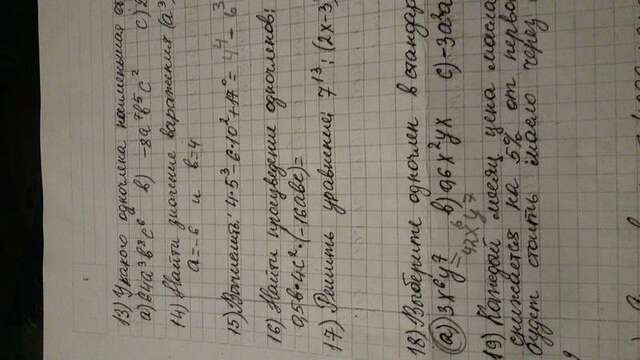 13) У какого одночлена наименьшая
а) 64а³в⁸с⁶ в) -8а⁷в⁵с² с)
14) Найти значение варажения (а³
а=-6 и в=4
15) Вычислить: 4·5³-6·10²+17⁰= 4⁴- 6³
16) Найти произведение одночленов:
0,5в·4с²·(-16авс)=
17) Решить уравнение: 7¹³:(2х-3)
18) Выберите одночлен в стандар
а) 3х⁶у⁷ в) 0,6х²ух с) -3а²а
42х⁶у⁷
19) Каждый месяц цена масла
снижается на 5% от перво
будет стоить масло через